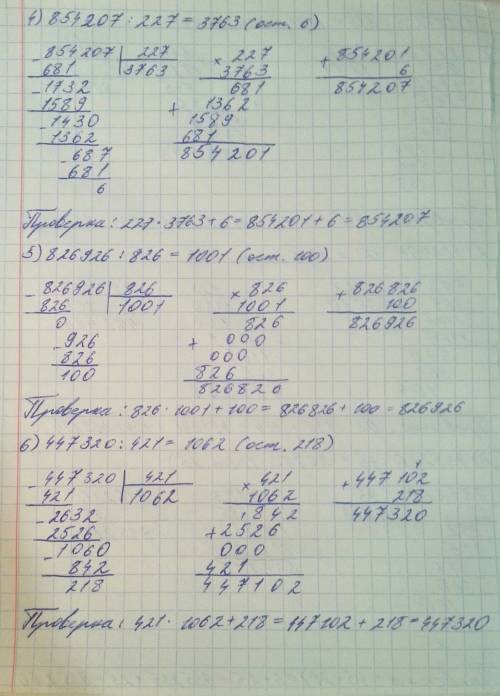 4) 854207 : 227 = 3763 (ост. 6)
- 854207 | 227 × 227 + 854201
681 | 3763 3763 6
- 1732 681 854207
1589 + 1362
- 1430 1589
1362 681
- 687 854201
681
6
Проверка: 227 · 3763 + 6 = 854201 + 6 = 854207
5) 826926 : 826 = 1001 (ост. 100)
- 826926 | 826 × 826 + 826826
826 | 1001 1001 100
0 826 826926
- 926 + 000
826 000
100 826
826826
Проверка: 826 · 1001 + 100 = 826826 + 100 = 826926
6) 447320 : 421 = 1062 (ост. 218)
- 447320 | 421 × 421 + 447102
421 | 1062 1062 218
- 2632 842 447320
2526 + 2526
- 1060 000
842 421
218 447102
Проверка: 421 · 1062 + 218 = 447102 + 218 = 447320